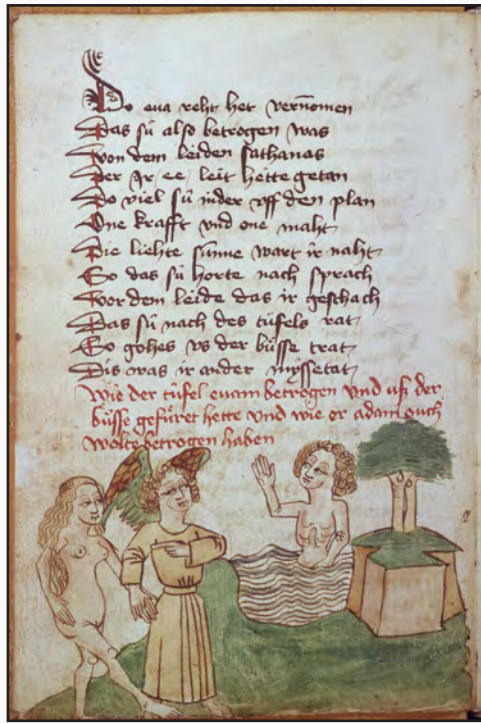 Do eua reht het vernomen
Das sú also betrogen was
Von dem leiden sathanas
Der Ir ee leit hette getan
Do viel sú nider vff den plan
One krafft vnd one maht
Die liehte sunne wart ir naht
So das sú horte noch sprach
Vor dem leide das ir geschach
Das sú nach des túfels rat
So gohes vs der büsse trat
Dis was ir ander myssetat
Wie der túfel euam betrogen vnd usz der
büsse gefúret hette vnd wie er adam ouch
wolte betrogen haben